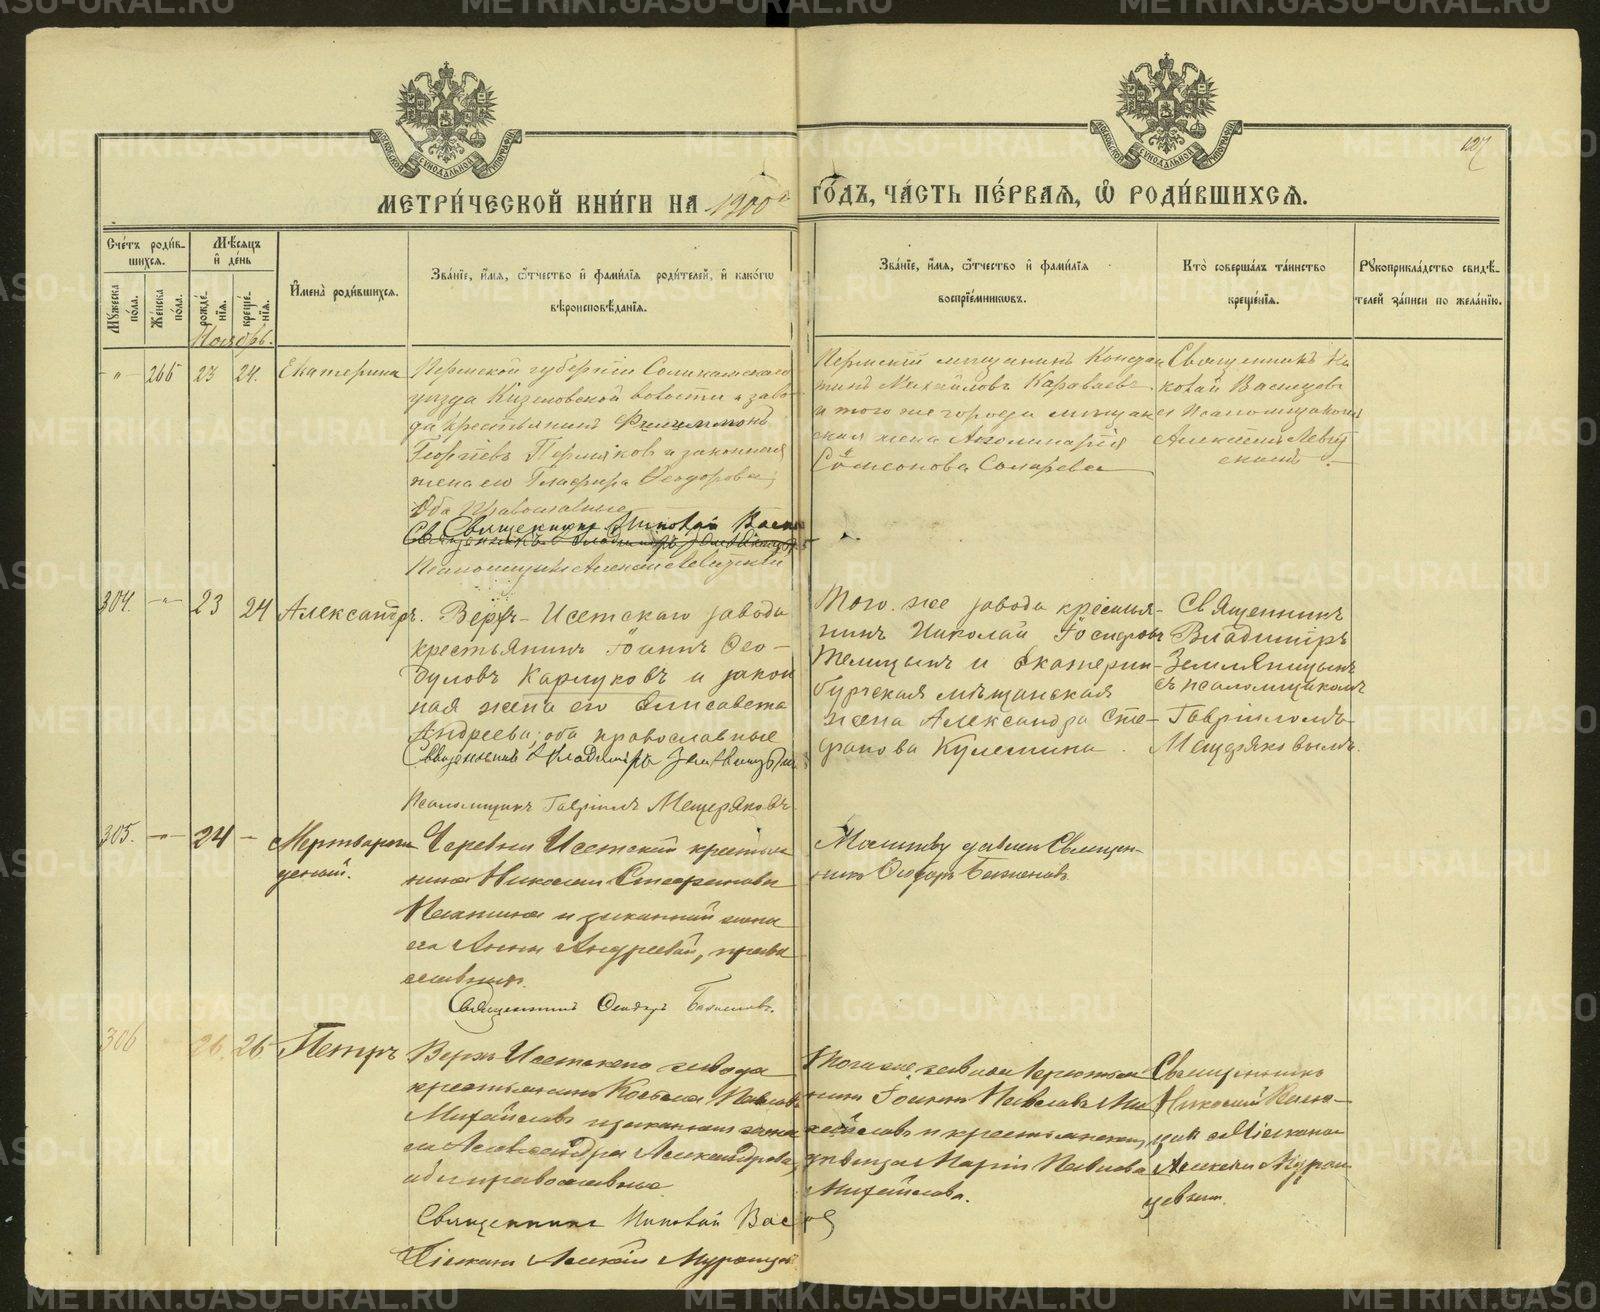 МЕТРИ́ЧЕСКОЙ КНИ́ГИ НА 1900 ГО́ДЪ, ЧА́СТЬ ПЕ́РВАЯ, Ѿ РОДИ́ВШИХСЯ.
127
Сче́тъ роди́вшихся.
Му́жеска по́ла.
Же́нска по́ла.
Мѣ́сяцъ и де́нь
рожде́нїя.
креще́нїя.
И҆мена̀ роди́вшихся.
Зва́нїе, и҆́мя, ѻ҆́тчество и҆ фами́лїя роди́телей, и҆ како́гѡ
вѣроисповѣ́данїя.
Зва́нїе, и҆́мя, ѻ҆́тчество и҆ фами́лїя
воспрїе́мниковъ.
Кто̀ соверша́лъ та́инство
креще́нїя.
Рꙋкоприкла́дство свидѣ́-
телей за́писи по жела́нїю.
Ноябрь.
266 23 24. Екатерина
Пермской губернiи Соликамскаго
уѣзда Кизеловской волости и заво-
да крестьянинъ Филимонъ
Георгiевъ Пермяковъ и законная
жена его Глафира Ѳеодорова,
оба православные
Священникъ Николай
Псаломщикъ Алексѣй Левитскiй
Пермскiй мѣщанинъ Констан
тинъ Михайловъ Караваевъ
и того же города мѣщан
ская жена Аполинарiя
Симеонова
Священникъ Ни
колай Васнецовъ
съ псаломщикомъ
Алексѣемъ Левит
скимъ.
304. 23 24 Александръ.
Верхъ-Исетскаго завода
крестьянинъ Iоаннъ Ѳео-
дуловъ Карлуковъ и закон
ная жена его Елисавета
Андреева, оба православные
Священникъ Владимiръ Земляницынъ
Псаломщикъ Гаврiилъ Мещеряковъ.
Того же завода крестья-
нинъ Николай Iосифовъ
Телицынъ и Екатерин-
бургская мѣщанская
жена Александра Сте-
фанова Кулешина.
Священникъ
Владимiръ
Земляницынъ
съ псаломщикомъ
Гаврiиломъ
Мещеряковымъ.
305. 24 Мертворож
денный.
Деревни Исетской крестья
нина Николая Стефанова
и законной жены
его Анны Андреевой, право
славныхъ.
Священникъ Ѳеодоръ Баженовъ.
Молитву давалъ Священ-
никъ Ѳеодоръ Баженовъ
306 26. 26 Петръ
Верхъ Исетскаго завода
крестьянинъ Косьма Павловъ
Михайловъ и законная жена
его Александра Александрова,
оба православные.
Священникъ Николай Васнецов
Дiаконъ Алексѣй Муромцевъ
Того же завода крестьян
нинъ Iоаннъ Павловъ Ми
хайловъ и крестьянская
дѣвица Марiя Павлова
Михайлова.
Священникъ
Николай Васне-
цовъ съ дiакономъ
Алексѣемъ Муром
цевымъ.
METRIKI.GASO-URAL.RU